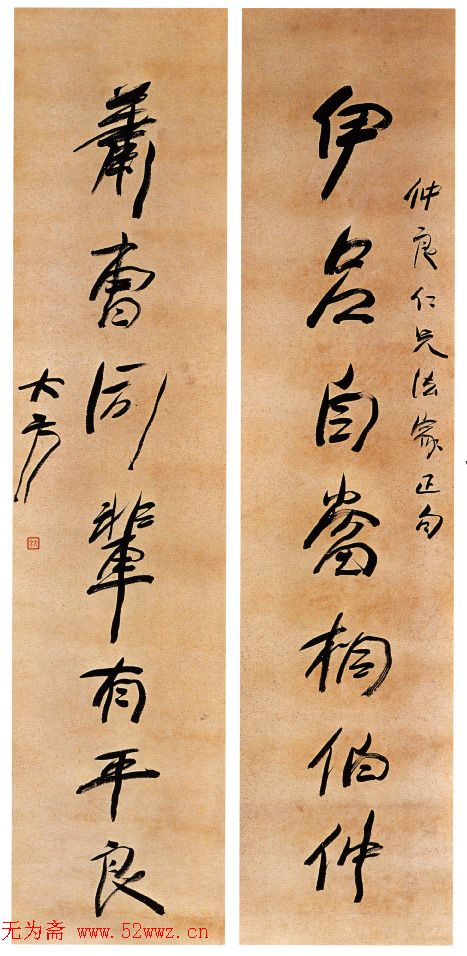 仲良仁兄法家正句
伊呂自當相伯仲
蕭曹同輩有平良
大方
无为斋 www.52wwz.cn